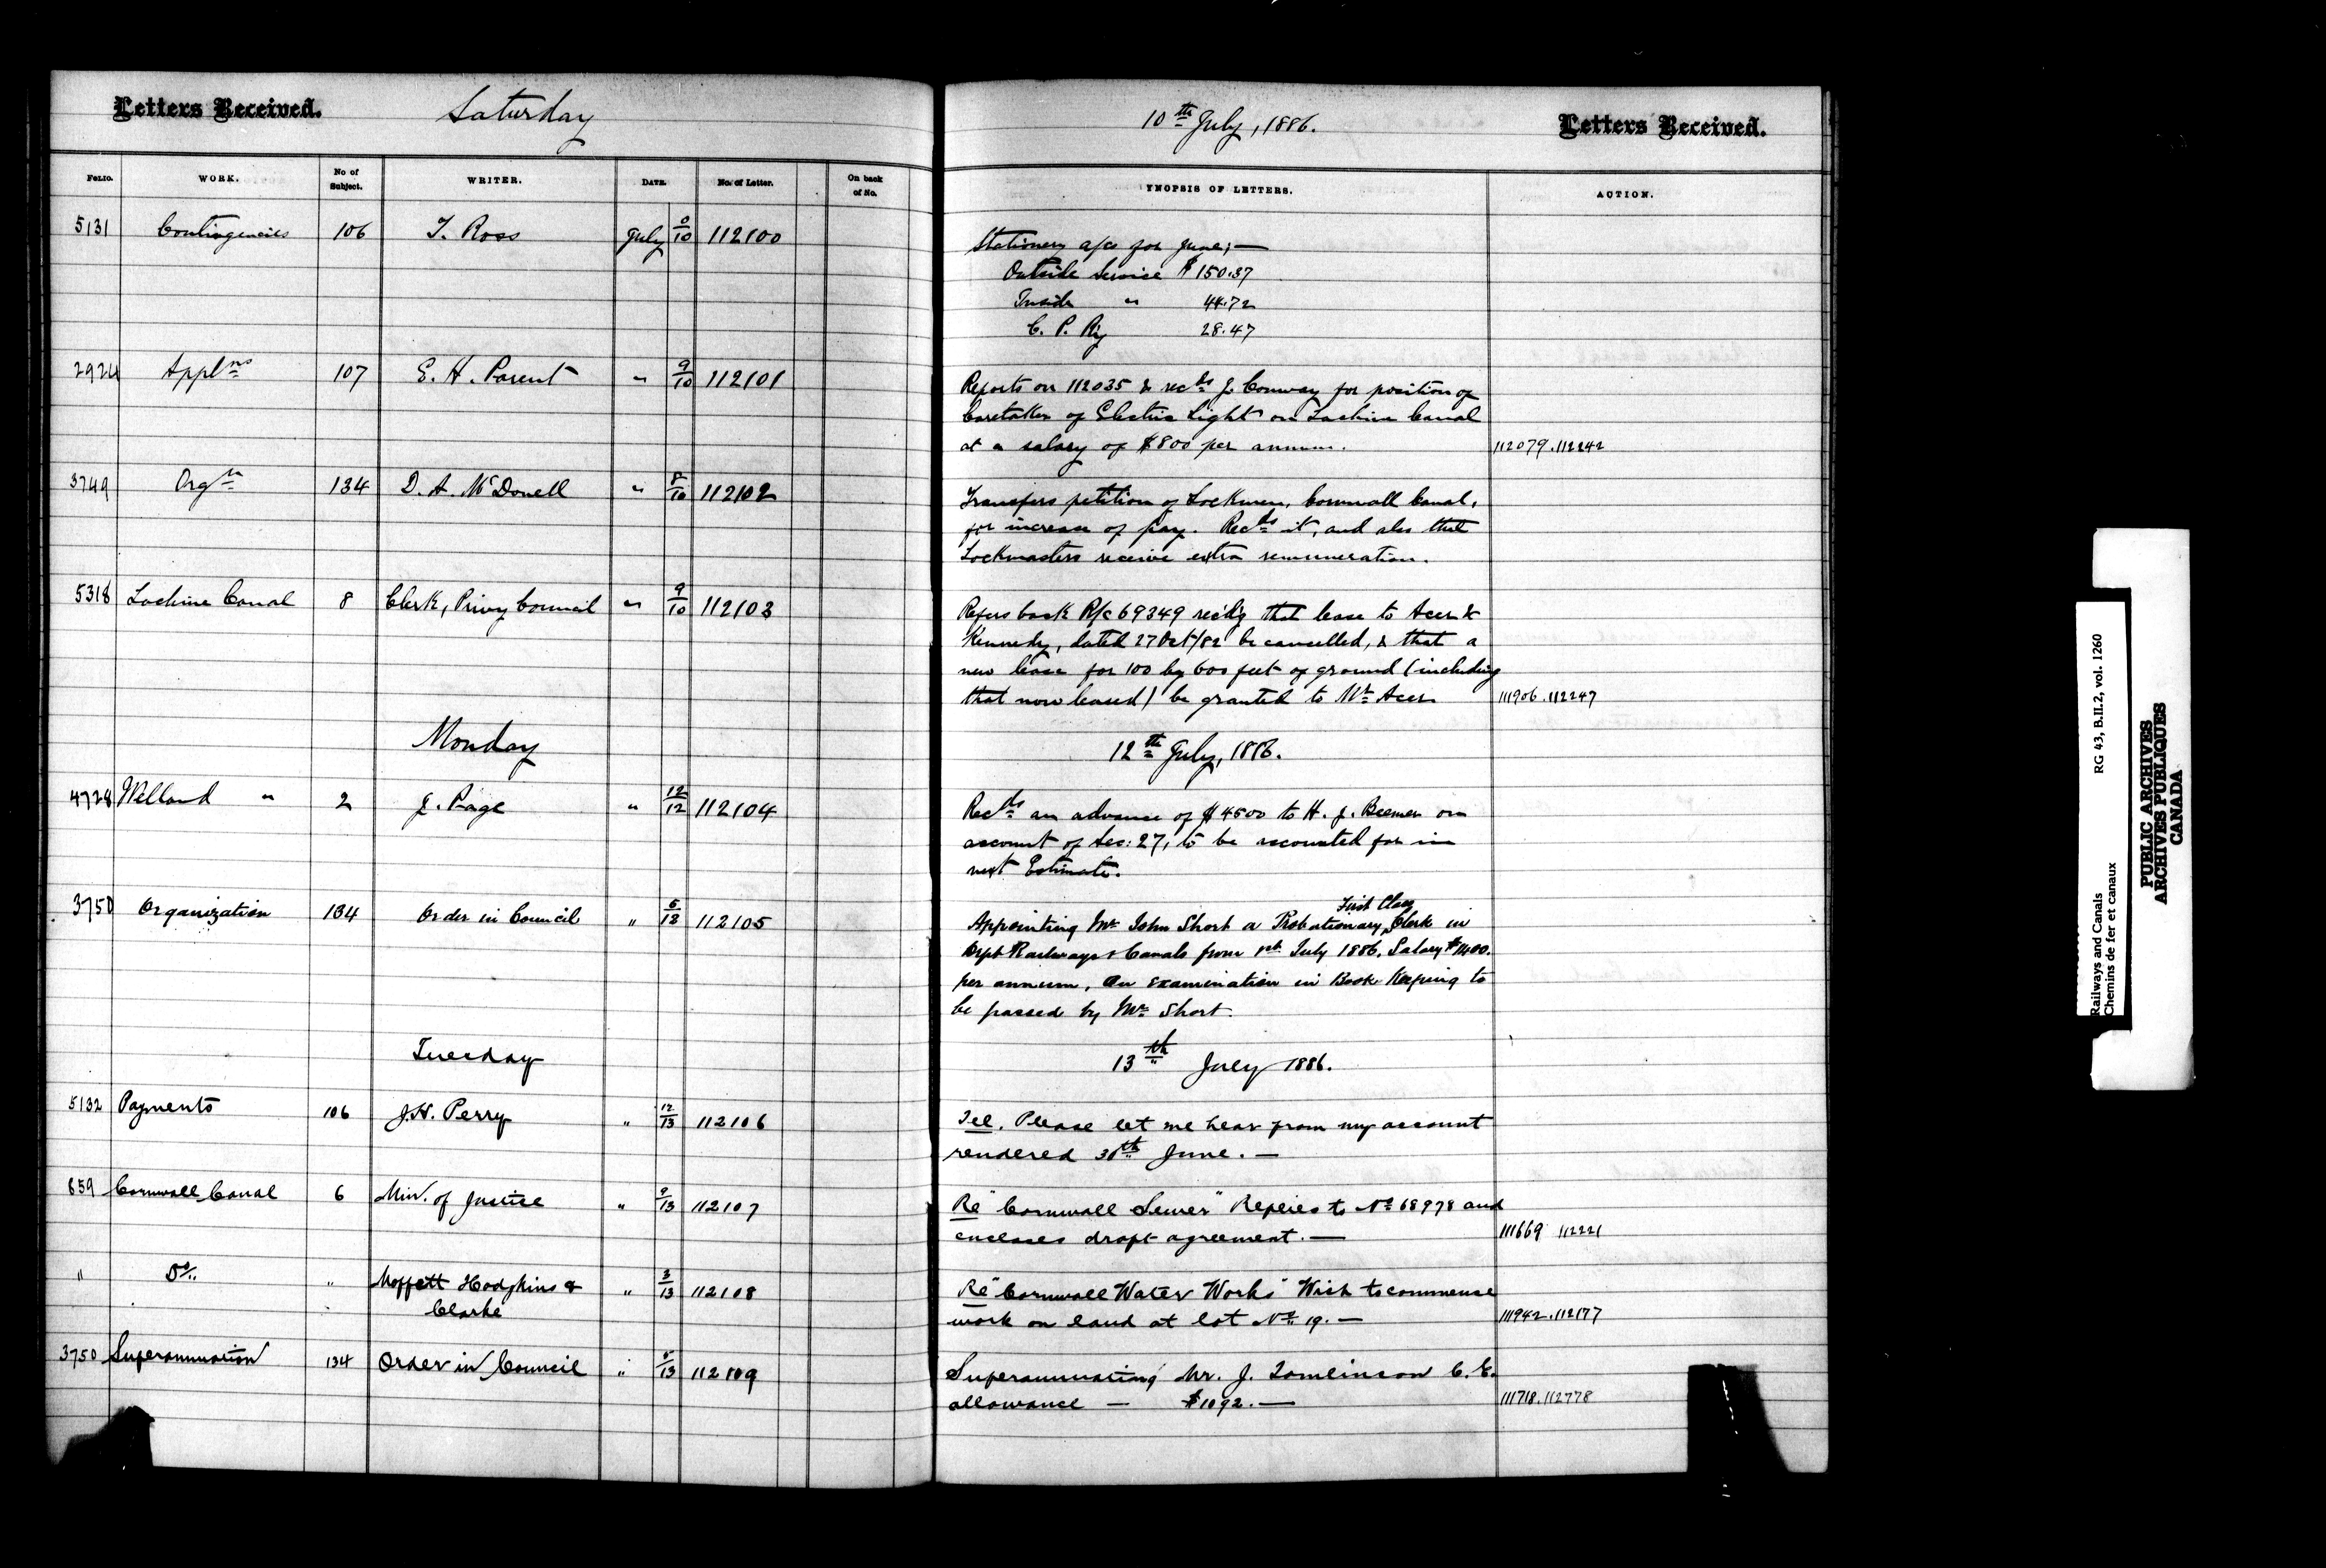 Letters Received. Saturday 10th July, 1886. Letters Received.
FOLIO. WORK. No of Subject. WRITER. DATE. No. of Letter. On back of No. SYNOPSIS OF LETTERS. ACTION.
5131 Contingencies 106 T. Ross July 8/10 112100 Stationery a/cs for June;—
Outside Service $150.37
Inside " 44.72
C. P. Ry 28.47
2924 Applns 107 E. H. Parent " 9/10 112101 Reports on 112035 & recds J. Conway for position of
Caretaker of Electric Light on Lachine Canal
at a salary of $800 per annum. 112079.112242
3749 Orgn 134 D. A. McDonell " 8/10 112102 Transfers petition of Lockmen, Cornwall Canal,
for increase of pay. Recds it, and also that
Lockmasters receive extra remuneration.
5318 Lachine Canal 8 Clerk, Privy Council " 9/10 112103 Refers back R/c 69349 rec'd'g that lease to Acer &
Kennedy, dated 27 Oct/82 be cancelled, & that a
new lease for 100 by 600 feet of ground (including
that now leased) be granted to Mr Acer 111906.112247
Monday 12th July, 1886.
4728 Welland " 2 J. Page " 12/12 112104 Recds an advance of $4500 to H. J. Beemer on
account of Sec: 27, to be accounted for in
next Estimate.
3750 Organization 134 Order in Council " 5/13 112105 Appointing Mr John Short a Probationary First Class Clerk in
Dept Railways & Canals from 1st July 1886, Salary $1400.
per annum, An examination in Book Keeping to
be passed by Mr Short.
Tuesday 13th July 1886.
5132 Payments 106 J.H. Perry " 12/13 112106 Tel. Please let me hear from my account
rendered 30th June.—
859 Cornwall Canal 6 Min. of Justice " 9/13 112107 Re "Cornwall Sewer" Replies to No 68978 and
encloses draft agreement.— 111669 112221
" Do " Moffett Hodgkins & " 3/13 112108 Re "Cornwall Water Works" Wish to commence
Clarke work on land at lot No 19.— 111942.112177
3750 Superannuation 134 Order in Council " 5/13 112109 Superannuating Mr. J. Tomlinson C.E.
allowance — $1092.— 111718.112778
Railways and Canals RG 43, B.II.2, vol. 1260
Chemins de fer et canaux
PUBLIC ARCHIVES
ARCHIVES PUBLIQUES
CANADA